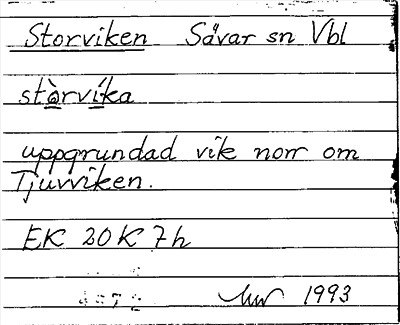 Storviken Sävar sn Vbl
stòrvíka
uppgrundad vik norr om
Tjuvviken.
EK 20K 7h
1993